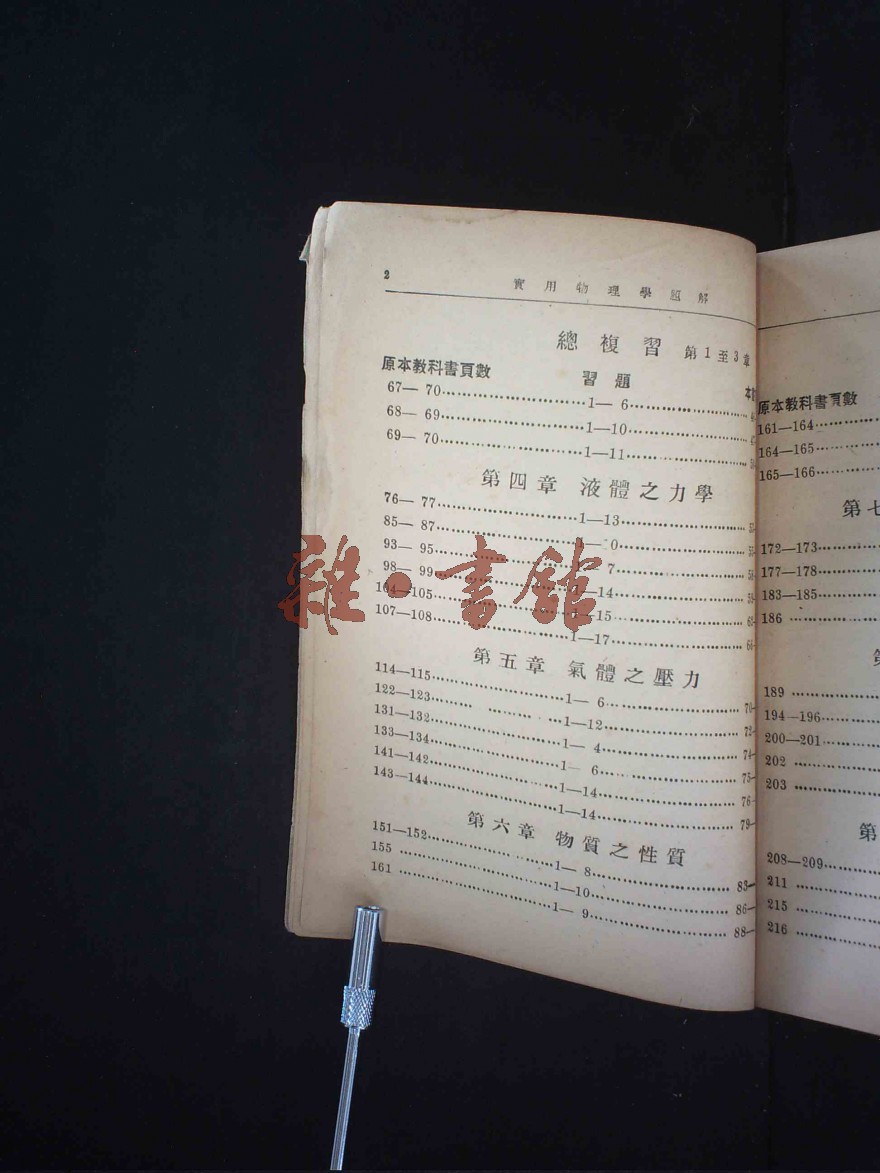 2
實用物理學題解
總複習 第1至3章
原本教科書頁數 習題
67— 70 1— 6
68— 69 1—10
69— 70 1—11
第四章 液體之力學
76— 77 1—13
85— 87
93— 95 7
98— 99 1—14
104—105 1—15
107—108 1—17
第五章 氣體之壓力
114—115 1— 6 70—
122—123 1—12 73—
131—132 1— 4 74—
133—134 1— 6 75—
141—142 1—14 76—
143—144 1—14 79—
第六章 物質之性質
151—152 1— 8 83—
155 1—10 86—
161 1— 9 88—
雜·書館
原本教科書頁數
161—164
164—165
165—166
第七
172—173
177—178
183—185
186
189
194—196
200—201
202
203
第
208—209
211
215
216